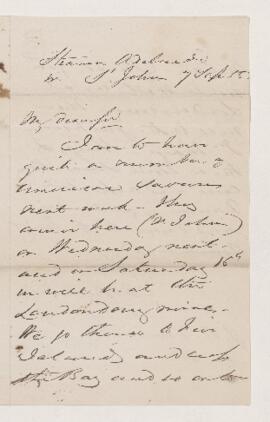 Steamer
St John 7 Sep
My dear Sir
I am to have
quite a number of
American savans
next week. They
arrive here (St John)
on Wednesday next
and on Saturday 16th
we will be at the
Londonderry mines.
We go thence to
Island and
the Bay and so on to